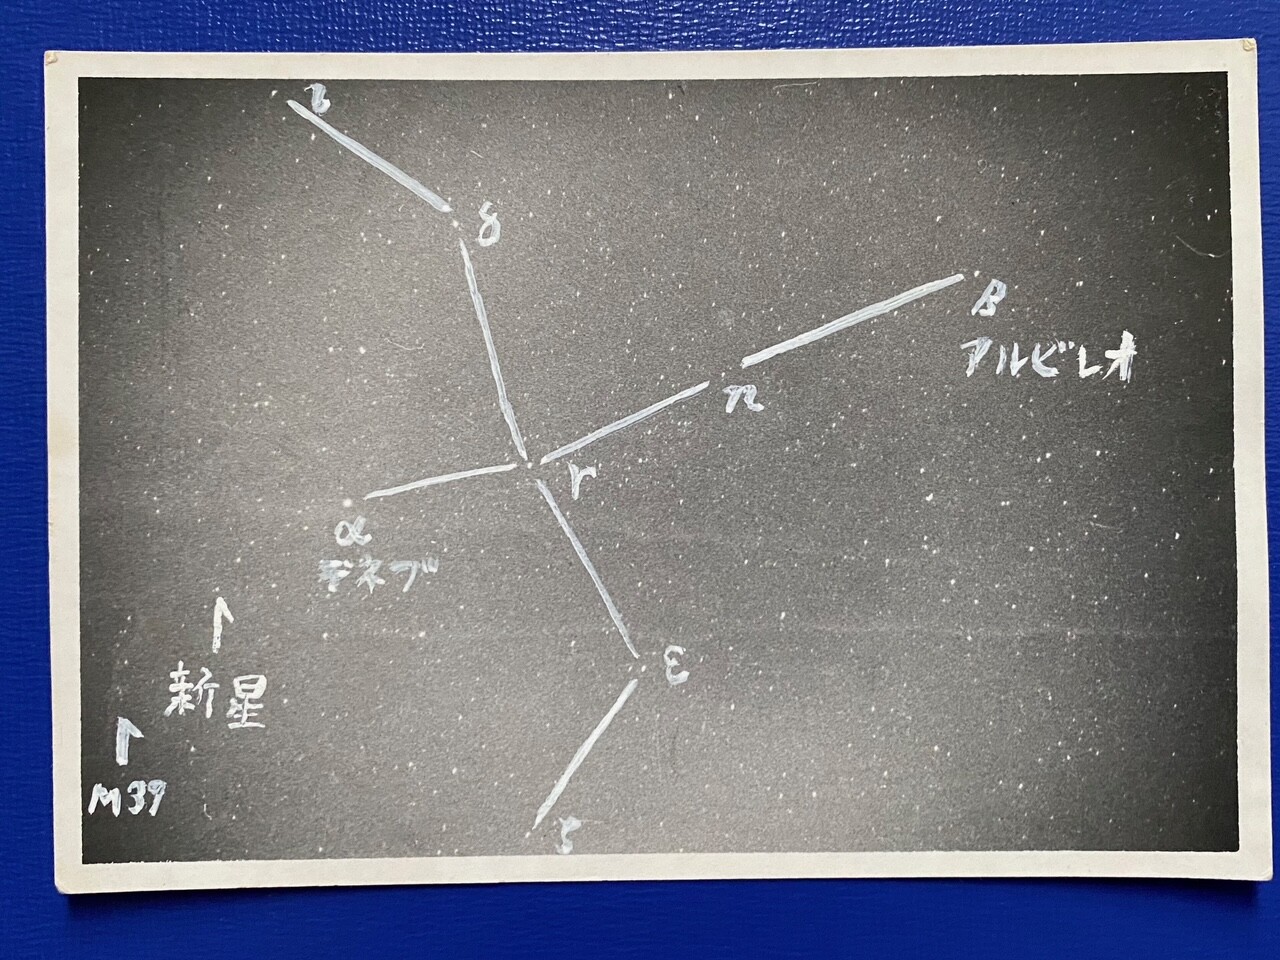 ι
δ
β
アルビレオ
η
γ
α
デネブ
ε
新星
M39
ζ